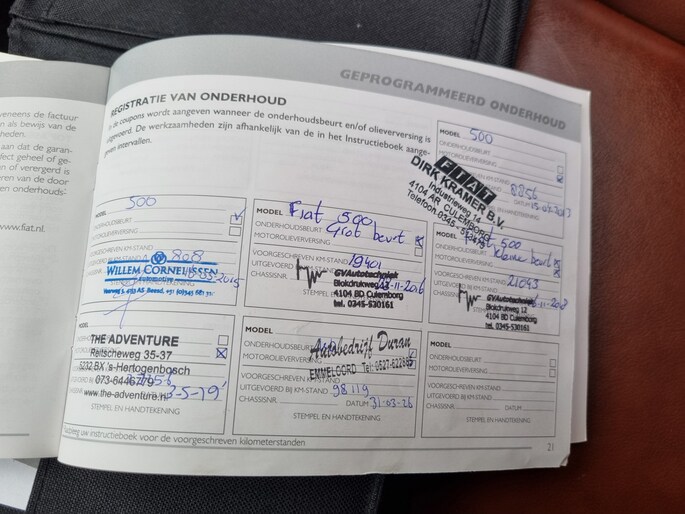 veneens de factuur
als bewijs van de
heden.
aan dat de garan-
fect geheel of ge-
of verergerd is
eren van de door
en onderhouds-
www.fiat.nl
GEPROGRAMMEERD ONDERHOUD
REGISTRATIE VAN ONDERHOUD
de coupons wordt aangeven wanneer de onderhoudsbeurt en/of olieverversing is
gevoerd. De werkzaamheden zijn afhankelijk van de in het Instructieboek aange-
geven intervallen.
MODEL 500
ONDERHOUDSBEURT
MOTOROLIEVERVERSING
8856
FIAT
DIRK KRAMER B.V.
Industrieweg 14
4104 AR CULEMBORG
Telefoon 0345-
MODEL 500
ONDERHOUDSBEURT
MOTOROLIEVERVERSING
VOORGESCHREVEN KM-STAND
WILLEM CORNELISSEN
automotive
MODEL Fiat 500
ONDERHOUDSBEURT Grot beurt
MOTOROLIEVERVERSING
VOORGESCHREVEN KM-STAND
19401
CHASSISNR.
GVAutotechniek
Blokdrukweg 12
4104 BD Culemborg
tel. 0345-530161
500
ONDERHOUDSBEURT kleine beurt
MOTOROLIEVERVERSING
VOORGESCHREVEN KM-STAND
UITGEVOERD BIJ KM-STAND 21093
CHASSISNR.
GVAutotechniek
Blokdrukweg 12
4104 BD Culemborg
tel. 0345-530161
MODEL
THE ADVENTURE
Reitscheweg 35-37
5232 BX 's-Hertogenbosch
073-6446779
www.the-adventure.nl
3-5-19
STEMPEL EN HANDTEKENING
MODEL
ONDERHOUDSBEURT
MOTOROLIEVERVERSING
Autobedrijf Duran
EMMELOORD Tel: 0527-622885
VOORGESCHREVEN KM-STAND
UITGEVOERD BIJ KM-STAND 98119
CHASSISNR. DATUM 31-03-26
STEMPEL EN HANDTEKENING
MODEL
ONDERHOUDSBEURT
MOTOROLIEVERVERSING
VOORGESCHREVEN KM-STAND
UITGEVOERD BIJ KM-STAND
CHASSISNR. DATUM
STEMPEL EN HANDTEKENING
uw instructieboek voor de voorgeschreven kilometerstanden
21